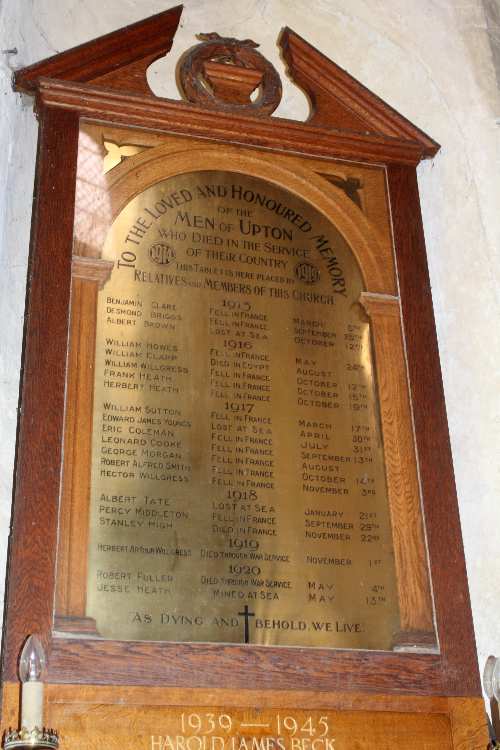 TO THE LOVED AND HONOURED MEMORY
OF THE
MEN OF UPTON
WHO DIED IN THE SERVICE
OF THEIR COUNTRY
1914 1919
THIS TABLET IS HERE PLACED BY
RELATIVES AND MEMBERS OF THIS CHURCH
1915
BENJAMIN CLARE FELL IN FRANCE MARCH 5TH
DESMOND BRIGGS FELL IN FRANCE SEPTEMBER 25TH
ALBERT BROWN LOST AT SEA OCTOBER 12TH
1916
WILLIAM HOWES FELL IN FRANCE MAY 24TH
WILLIAM CLAPP DIED IN EGYPT AUGUST
WILLIAM WILLGRESS FELL IN FRANCE OCTOBER 12TH
FRANK HEATH FELL IN FRANCE OCTOBER 15TH
HERBERT HEATH FELL IN FRANCE OCTOBER 19TH
1917
WILLIAM SUTTON FELL IN FRANCE MARCH 17TH
EDWARD JAMES YOUNGS LOST AT SEA APRIL 30TH
ERIC COLEMAN FELL IN FRANCE JULY 31ST
LEONARD COOKE FELL IN FRANCE SEPTEMBER 13TH
GEORGE MORGAN FELL IN FRANCE AUGUST
ROBERT ALFRED SMITH FELL IN FRANCE OCTOBER 14TH
HECTOR WILLGRESS FELL IN FRANCE NOVEMBER 3RD
1918
ALBERT TATE LOST AT SEA JANUARY 21ST
PERCY MIDDLETON FELL IN FRANCE SEPTEMBER 29TH
STANLEY HIGH DIED IN FRANCE NOVEMBER 22ND
1919
HERBERT ARTHUR WILLGRESS DIED THROUGH WAR SERVICE NOVEMBER 1ST
1920
ROBERT FULLER DIED THROUGH WAR SERVICE MAY 4TH
JESSE HEATH MINED AT SEA MAY 13TH
"AS DYING AND BEHOLD, WE LIVE."
1939 — 1945
HAROLD JAMES BECK